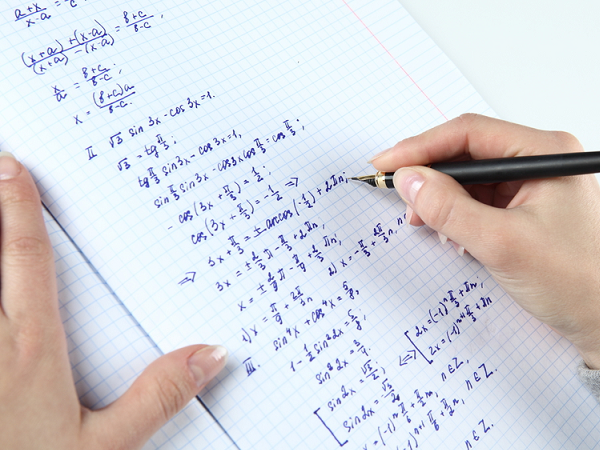 (a+x)/(x-a) =
((x+a)+(x-a))/((x+a)-(x-a)) = (b+c)/(b-c),
x/a = (b+c)/(b-c);
x = ((b+c)a)/(b-c).
II. √3 sin 3x - cos 3x = 1.
√3 = tg π/3;
tg π/3 sin 3x - cos 3x = 1,
sin π/3 sin 3x - cos 3x cos π/3 = cos π/3;
- cos(3x + π/3) = 1/2;
cos(3x + π/3) = -1/2 =>
=> 3x + π/3 = ± arccos(-1/2) + 2πn;
3x = ± 2/3 π - π/3 + 2πn,
x = ± 2/9 π - π/9 + 2/3 πn,
1) x = π/9 + 2π/3 n, 2) x = -π/3 + 2π/3 n, n
III. sin⁴x + cos⁴x = 5/8,
1 - 1/2 sin² 2x = 5/8;
sin² 2x = 3/4.
[ sin 2x = √3/2, <=> [ 2x = (-1)ⁿ π/3 + πn;
sin 2x = √3/2 2x = (-1)ⁿ⁺¹ π/3 + πn
x = (-1)ⁿ π/6 + π/2 n, n ∈ Z,
(-1)ⁿ⁺¹ π/6 + π/2 n, n ∈ Z.
n ∈ Z.